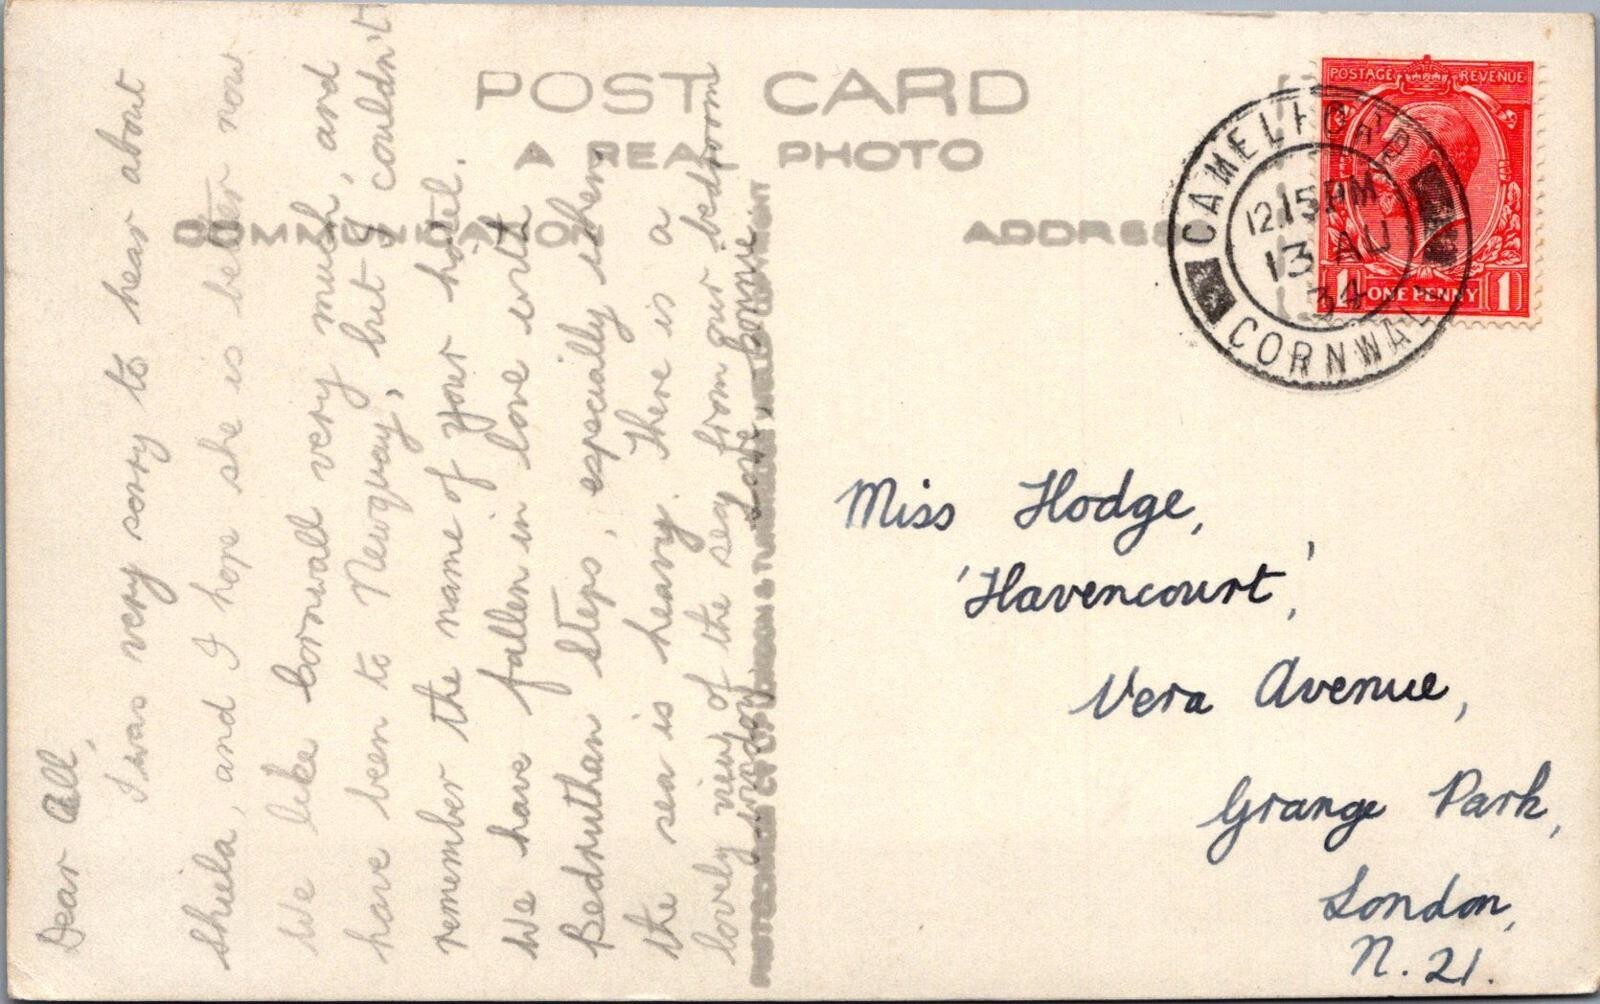 POST CARD
A REAL PHOTO
COMMUNICATION
ADDRESS
POSTAGE REVENUE
1 ONE PENNY 1
CAMELFORD
12.15 PM
13 AU
34
CORNWALL
Dear All,
I was very sorry to hear about
Sheila, and I hope she is better now
We like Cornwall very much, and
have been to Newquay, but I couldn't
remember the name of your hotel.
We have fallen in love with
Bedruthan Steps, especially when
the sea is heavy. There is a
lovely view of the sea from our bedroom
window. Love, Connie
Miss Hodge,
'Havencourt',
Vera Avenue,
Grange Park,
London,
N. 21.